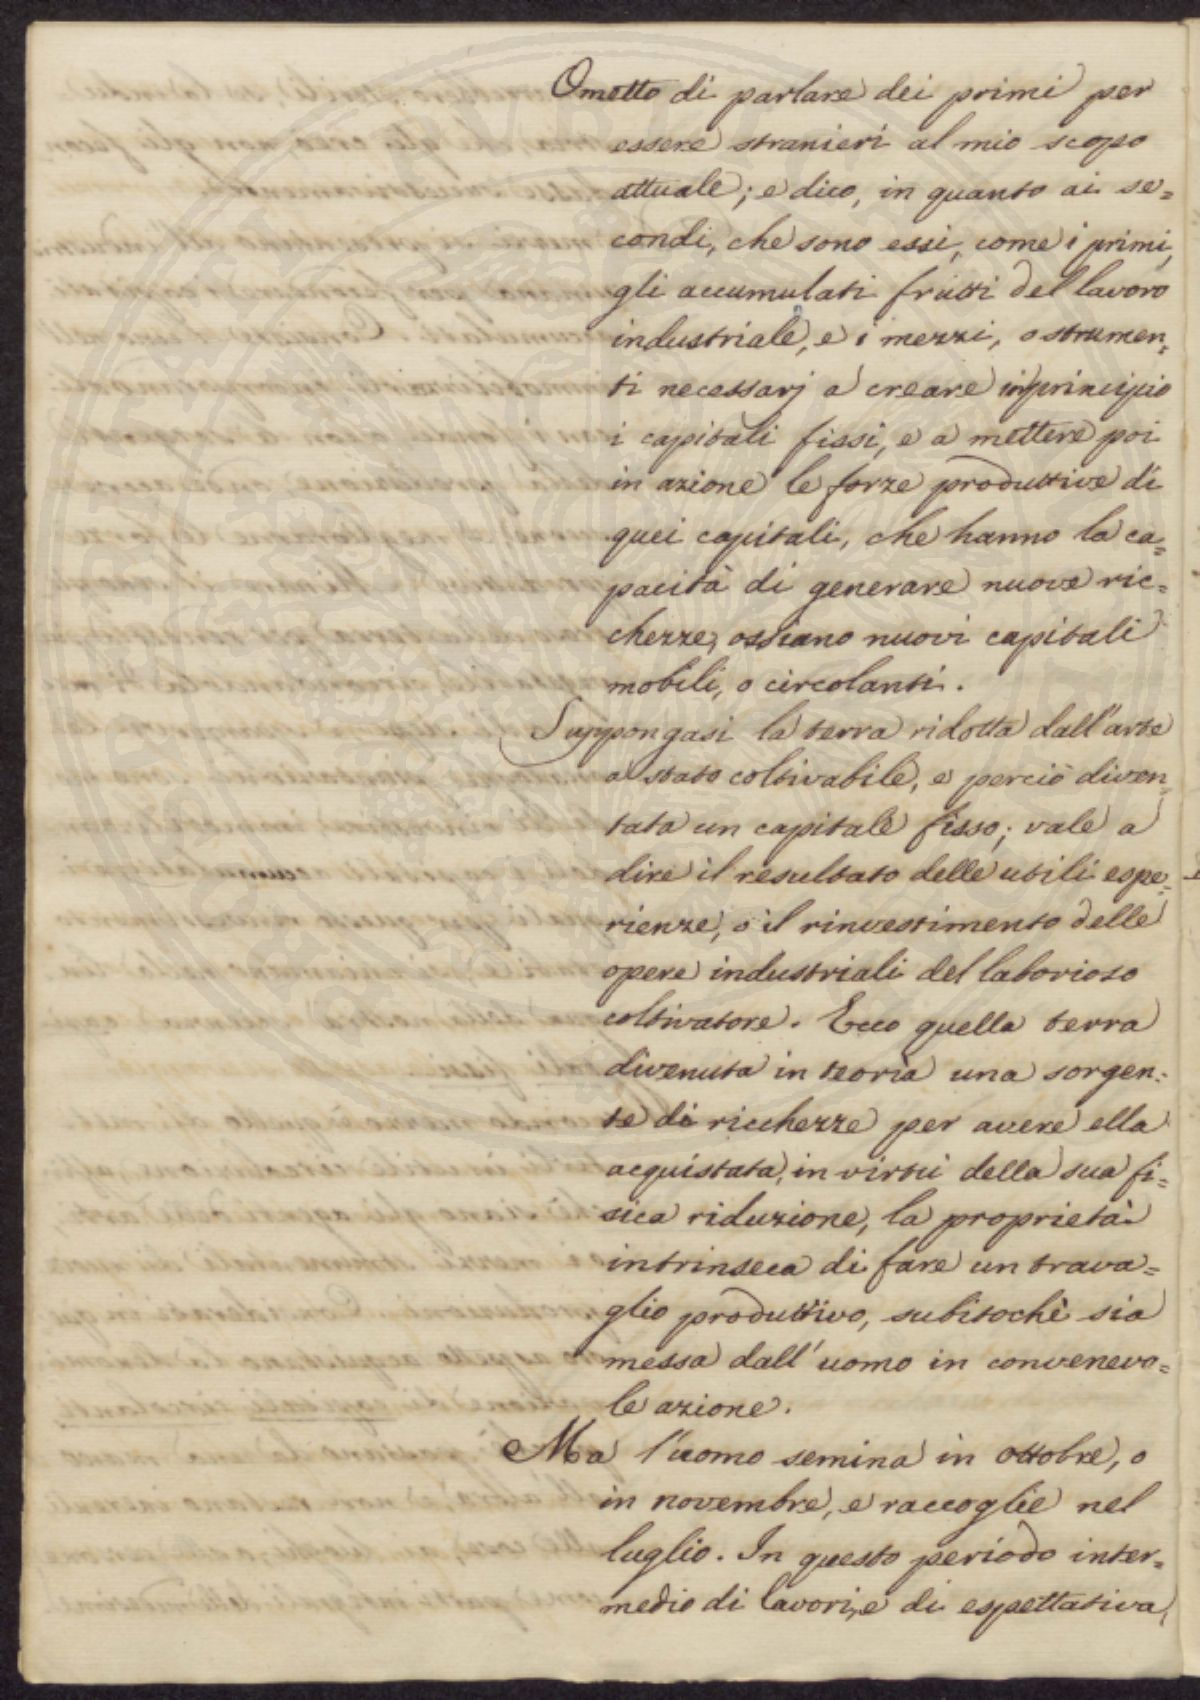 Ometto di parlare dei primi per
essere stranieri al mio scopo
attuale; e dico, in quanto ai se=
condi, che sono essi, come i primi,
gli accumulati frutti del lavoro
industriale, e i mezzi, o strumen=
ti necessarj a creare in principio
i capitali fissi, e a mettere poi
in azione le forze produttive di
quei capitali, che hanno la ca=
pacità di generare nuove ric=
chezze, ossiano nuovi capitali
mobili, o circolanti.
Suppongasi la terra ridotta dall'arte
a stato coltivabile, e perciò diven=
tata un capitale fisso; vale a
dire il resultato delle utili espe=
rienze, o il rinvestimento delle
opere industriali del laborioso
coltivatore. Ecco quella terra
divenuta in teoria una sorgen=
te di ricchezze per avere ella
acquistata, in virtù della sua fi=
sica riduzione, la proprietà
intrinseca di fare un trava=
glio produttivo, subitochè sia
messa dall'uomo in convenevo=
le azione.
Ma l'uomo semina in ottobre, o
in novembre, e raccoglie nel
luglio. In questo periodo inter=
medio di lavori, e di espettativa,